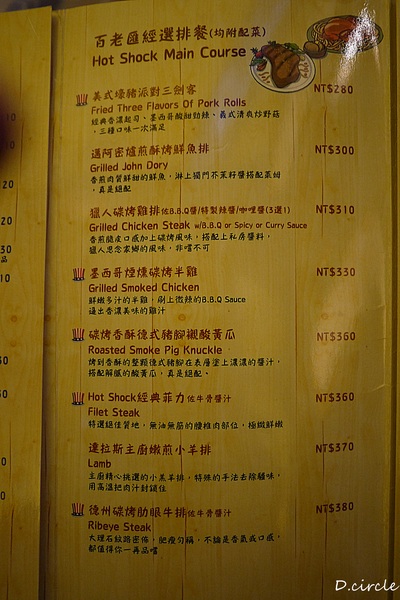 百老匯經選排餐(均附配菜)
Hot Shock Main Course
美式壕豬派對三劍客 NT$280
Fried Three Flavors Of Pork Rolls
經典香濃起司、墨西哥酸甜勁辣、義式清爽炒野菇
、三種口味一次滿足
邁阿密爐煎酥烤鮮魚排 NT$300
Grilled John Dory
香煎肉質鮮甜的鮮魚，淋上獨門芥茉籽醬搭配菜姐
，真是絕配
獵人碳烤雞排佐B.B.Q醬/特製辣醬/咖哩醬(3選1) NT$310
Grilled Chicken Steak w/B.B.Q or Spicy or Curry Sauce
香煎脆皮口感加上碳烤風味，搭配上私房醬料，
獵人思念家鄉的風味，非嚐不可
墨西哥煙燻碳烤半雞 NT$330
Grilled Smoked Chicken
鮮嫩多汁的半雞，刷上微辣的B.B.Q Sauce
逼出香濃美味的雞汁
碳烤香酥德式豬腳襯酸黃瓜 NT$360
Roasted Smoke Pig Knuckle
烤到香酥的整顆德式豬腳在表層塗上濃濃的醬汁，
搭配解膩的酸黃瓜，真是絕配。
Hot Shock經典菲力佐牛骨醬汁 NT$360
Filet Steak
特選絕佳質地，無油無筋的腰椎肉部位，極緻鮮嫩
達拉斯主廚嫩煎小羊排 NT$370
Lamb
主廚精心挑選的小羔羊排，特殊的手法去除騷味，
用高溫把肉汁封鎖住
德州碳烤肋眼牛排佐牛骨醬汁 NT$380
Ribeye Steak
大理石紋路密佈，肥瘦勻稱，不論是香氣或口感，
都值得你一再品嚐
D.circle